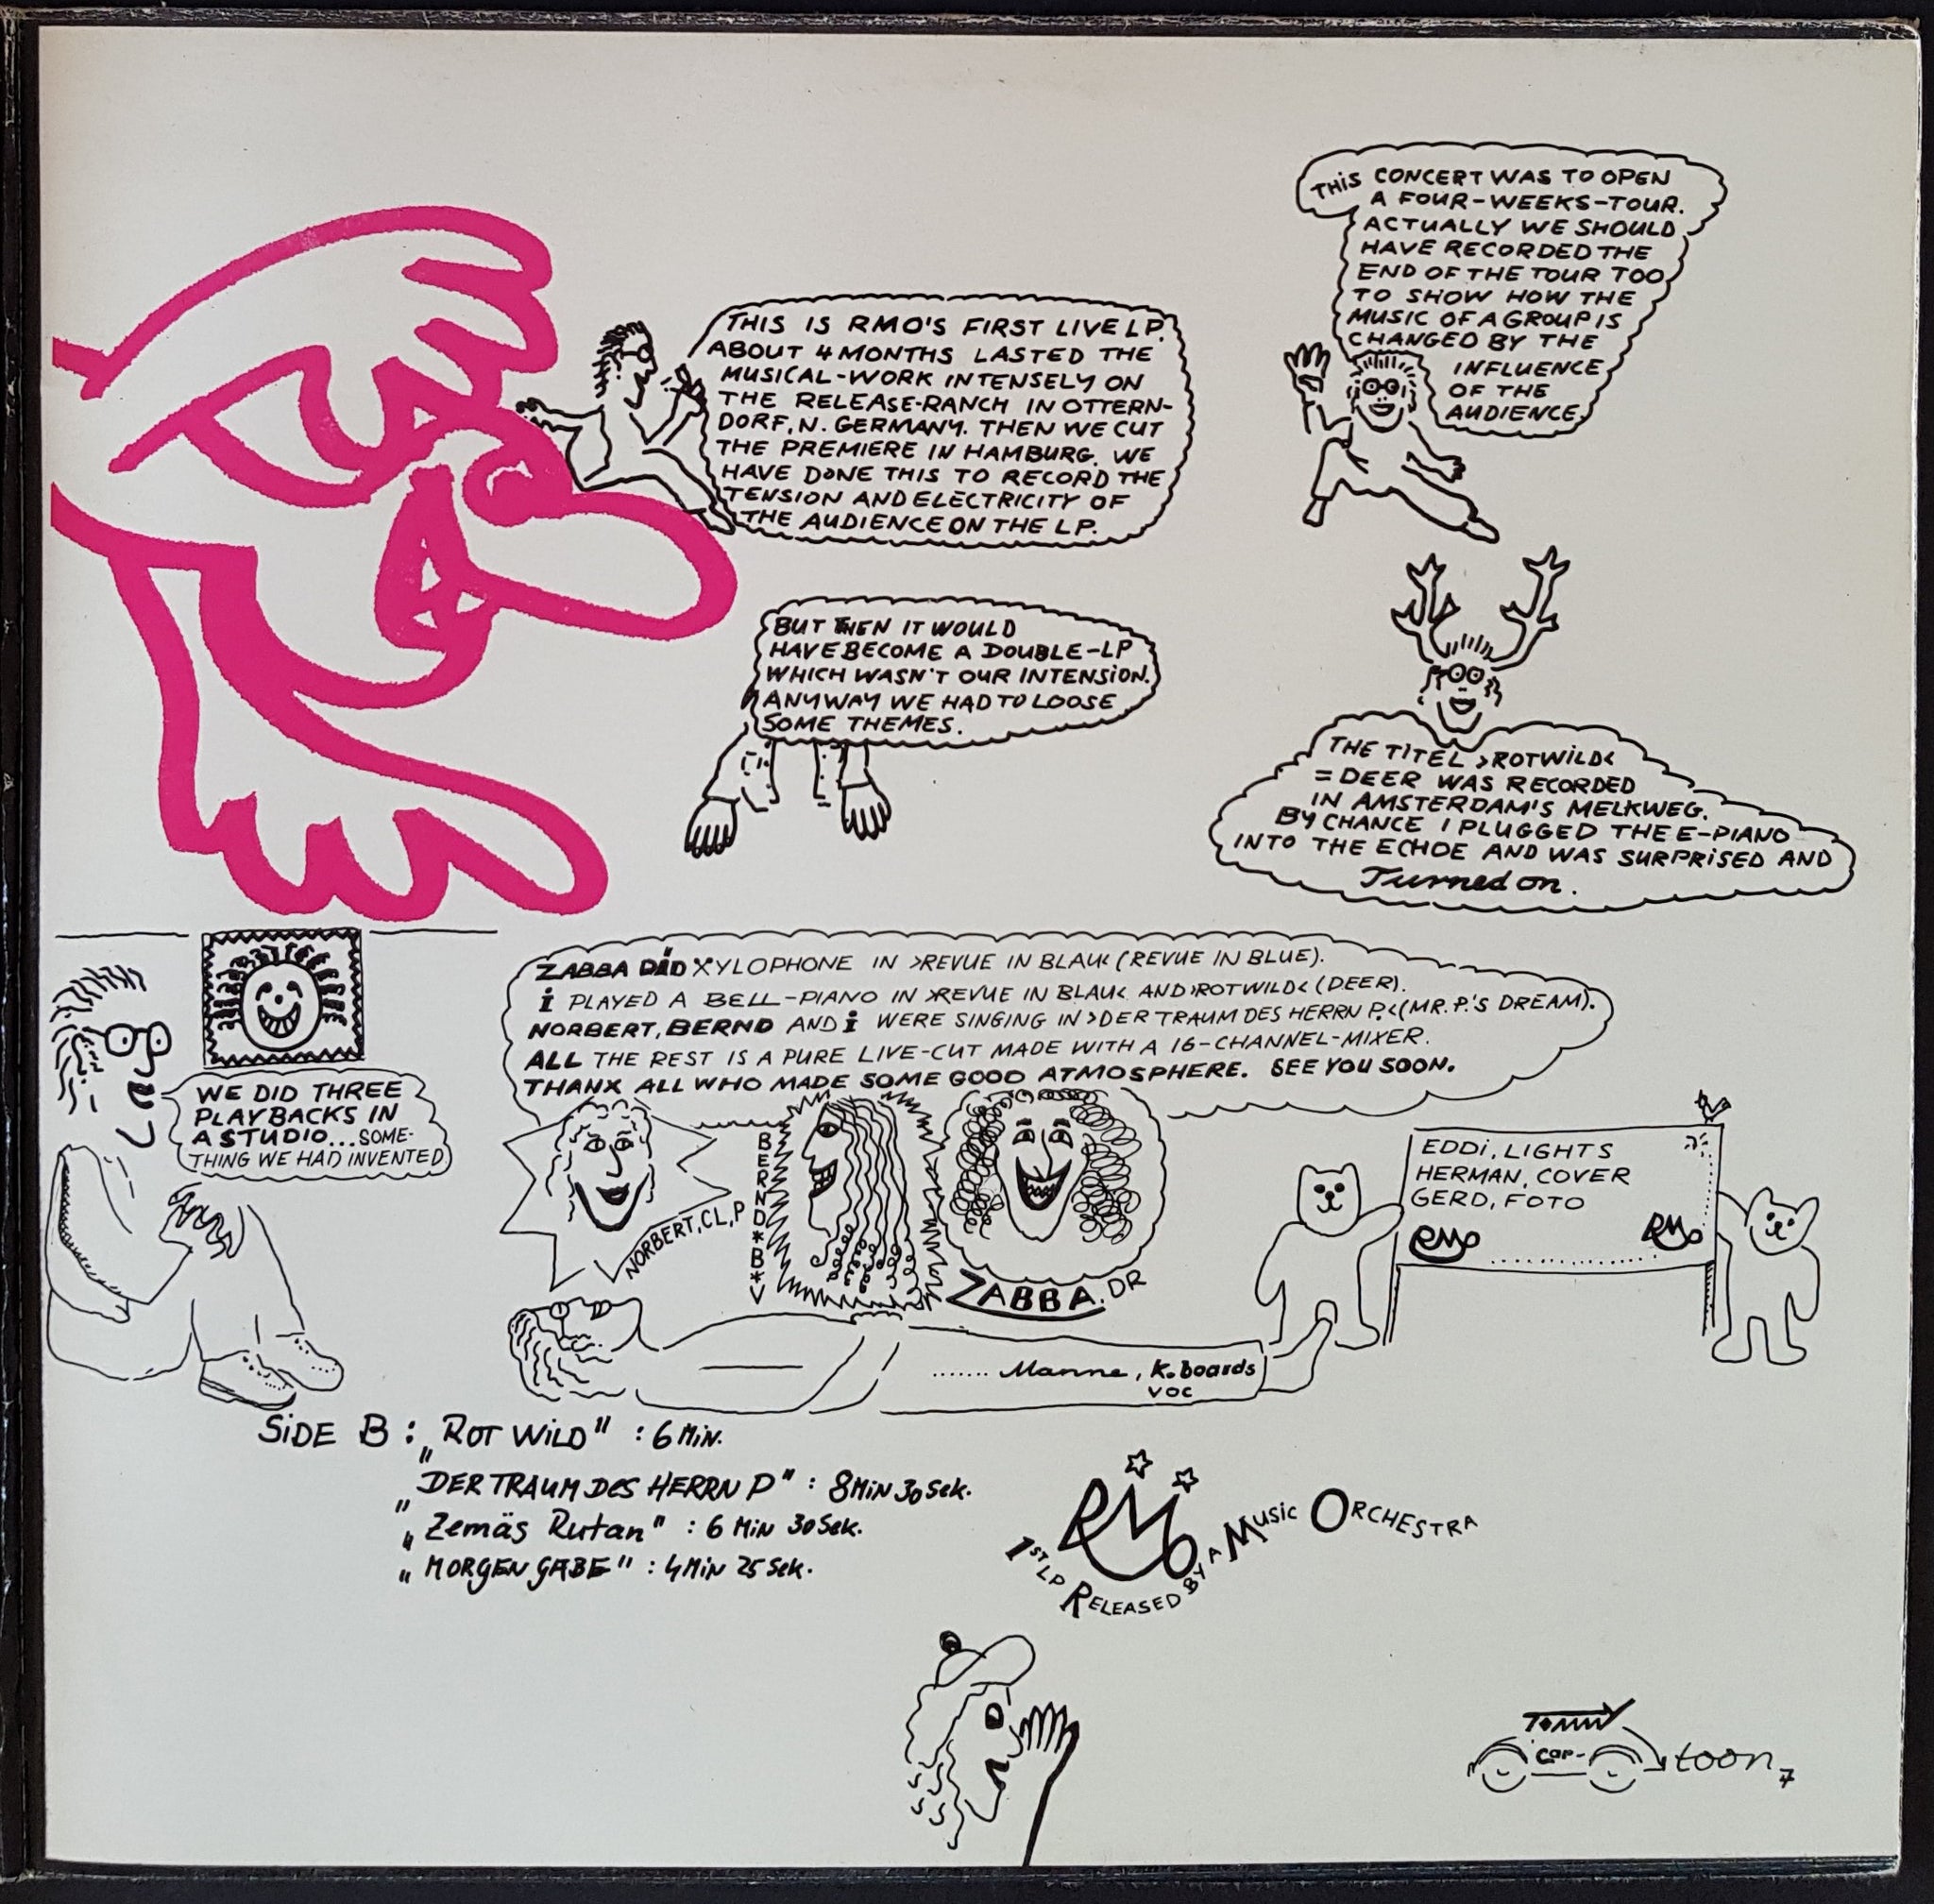 THIS CONCERT WAS TO OPEN
A FOUR-WEEKS-TOUR.
ACTUALLY WE SHOULD
HAVE RECORDED THE
END OF THE TOUR TOO
TO SHOW HOW THE
MUSIC OF A GROUP IS
CHANGED BY THE
INFLUENCE
OF THE
AUDIENCE.
THIS IS RMO'S FIRST LIVE LP.
ABOUT 4 MONTHS LASTED THE
MUSICAL-WORK INTENSELY ON
THE RELEASE-RANCH IN OTTERN-
DORF, N. GERMANY. THEN WE CUT
THE PREMIERE IN HAMBURG. WE
HAVE DONE THIS TO RECORD THE
TENSION AND ELECTRICITY OF
THE AUDIENCE ON THE LP.
BUT THEN IT WOULD
HAVE BECOME A DOUBLE-LP
WHICH WASN'T OUR INTENSION.
ANYWAY WE HAD TO LOOSE
SOME THEMES.
THE TITEL >ROTWILD<
= DEER WAS RECORDED
IN AMSTERDAM'S MELKWEG.
BY CHANCE I PLUGGED THE E-PIANO
INTO THE ECHOE AND WAS SURPRISED AND
Turned on.
WE DID THREE
PLAYBACKS IN
A STUDIO...SOME-
THING WE HAD INVENTED
ZABBA DID XYLOPHONE IN >REVUE IN BLAU< (REVUE IN BLUE).
i PLAYED A BELL-PIANO IN >REVUE IN BLAU< AND >ROTWILD< (DEER).
NORBERT, BERND AND i WERE SINGING IN >DER TRAUM DES HERRN P.< (MR. P.'S DREAM).
ALL THE REST IS A PURE LIVE-CUT MADE WITH A 16-CHANNEL-MIXER.
THANX ALL WHO MADE SOME GOOD ATMOSPHERE. SEE YOU SOON.
NORBERT, CL, P
BERND*B*V
ZABBA. DR
....... Manne, K.boards
VOC
EDDi, LIGHTS
HERMAN, COVER
GERD, FOTO
RMO RMO
SiDE B: „ROT WiLD" : 6 Min.
„DER TRAUM DES HERRN P" : 8 Min 30 Sek.
„Zemäs Rutan" : 6 Min 30 Sek.
„MORGEN GABE" : 4 Min 25 Sek.
RMO
1ST LP RELEASED BY A MUSiC ORCHESTRA
TOMMY
car-toon 7